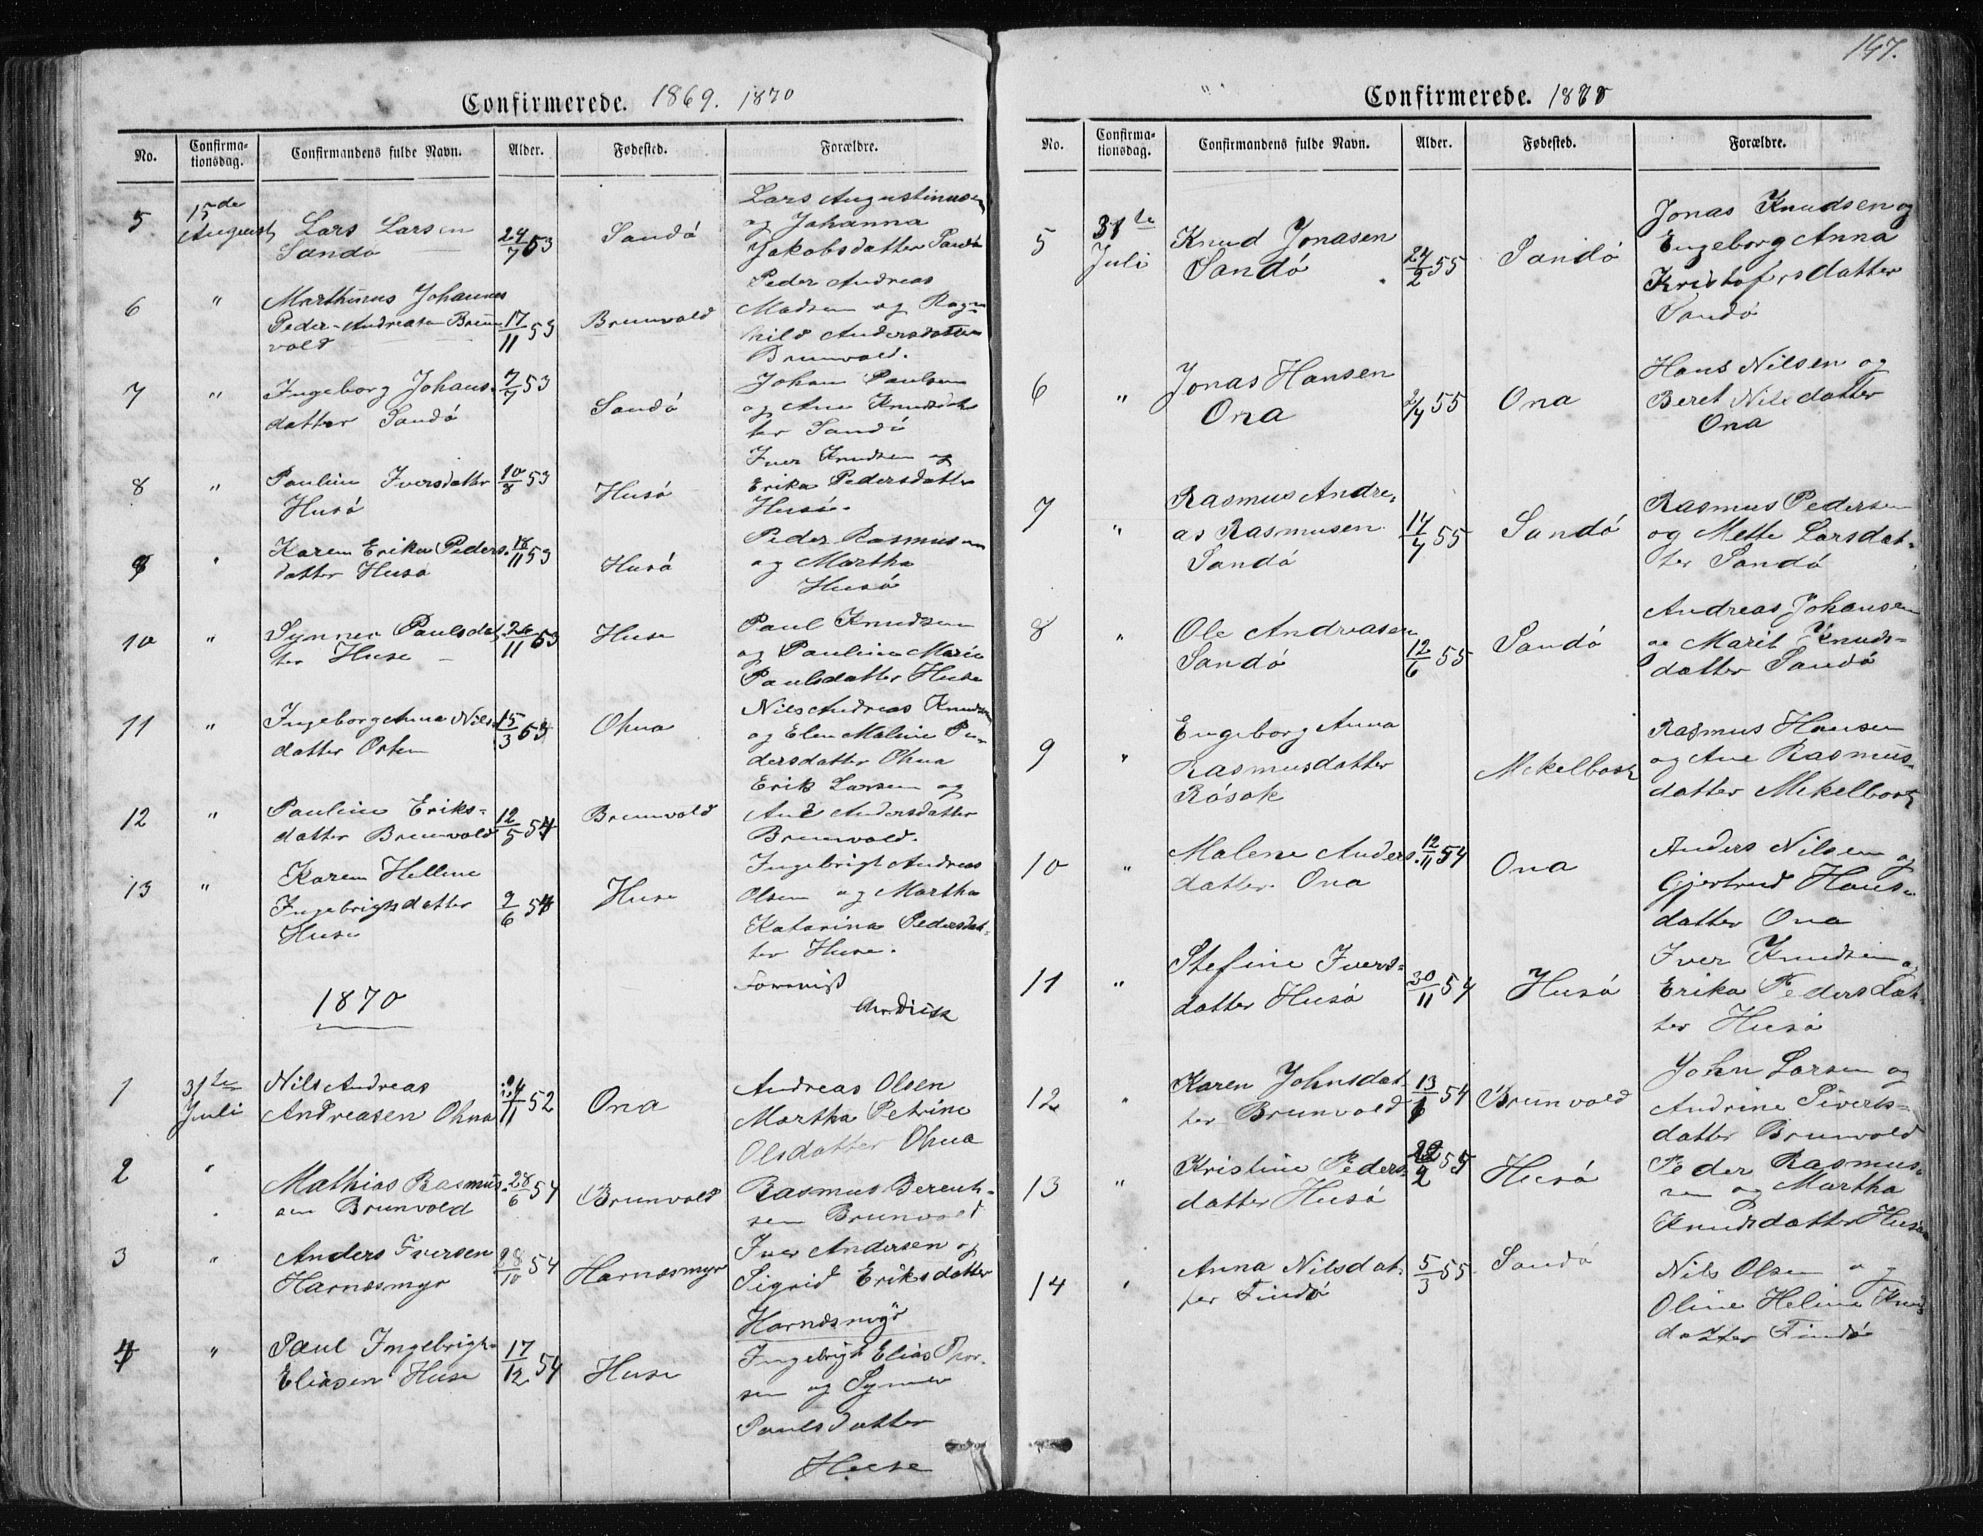 Confirmerede. 1869. 1870
No. Confirma-tionsdag. Confirmandens fulde Navn. Alder. Fødested. Forældre.
5 15de August Lars Larsen Sandø 24/7 53 Sandø Lars Augustinusen og Johanna Jakobsdatter Sandø
6 " Marthinus Johannes Peder-Andreasen Brunvold 17/11 53 Brunvold Peder Andreas Madsen og Ragnhild Andersdatter Brunvold.
7 " Ingeborg Johansdatter Sandø 7/7 53 Sandø Johan Paulsen og Ane Knudsdatter Sandø
8 " Pauline Iversdatter Husø 10/8 53 Husø Iver Knudsen og Erika Pedersdatter Husø.
9 " Karen Erika Pedersdatter Husø 18/11 53 Husø Peder Rasmusen og Martha Husø
10 " Synner Paulsdatter Huse 26/11 53 Huse Paul Knudsen og Pauline Marie Paulsdatter Huse
11 " Ingeborg Anna Nilsdatter Orten 15/3 53 Ohna Nils Andreas Knudsen og Elen Maline Pedersdatter Ohna
12 " Pauline Eriksdatter Brunvold 12/5 54 Brunvold Erik Larsen og Ane Andersdatter Brunvold.
13 " Karen Helline Ingebrigtsdatter Huse 2/6 54 Huse Ingebrigt Andreas Olsen og Martha Katarina Pedersdatter Huse.
1870
1 31te Juli Nils Andreas Andreasen Ohna 11 52 Ona Andreas Olsen Martha Petrine Olsdatter Ohna
2 " Mathias Rasmusen Brunvold 28/6 54 Brunvold Rasmus Berentsen Brunvold
3 " Anders Iversen Harnæsmyr 28/10 54 Harnæsmyr Iver Andersen og Sigrid Eriksdatter Harnæsmyr
4 " Paul Ingebrigt Eliasen Huse 17/12 54 Huse Ingebrigt Elias Thorsen og Synner Paulsdatter Huse
147.
Confirmerede. 1870
No. Confirma-tionsdag. Confirmandens fulde Navn. Alder. Fødested. Forældre.
5 31te Juli Knud Jonasen Sandø 24/2 55 Sandø Jonas Knudsen og Engeborg Anna Kristofersdatter Sandø
6 " Jonas Hansen Ona 2/4 55 Ona Hans Nilsen og Beret Nilsdatter Ona
7 " Rasmus Andreas Rasmusen Sandø 14/4 55 Sandø Rasmus Pedersen og Mette Larsdatter Sandø
8 " Ole Andreasen Sandø 12/6 55 Sandø Andreas Johansen og Marit Knudsdatter Sandø
9 " Engeborg Anna Rasmusdatter Røsok Mekelbost Rasmus Hansen og Ane Rasmusdatter Mekelbost
10 " Malene Andersdatter Ona 12/11 54 Ona Anders Nilsen og Gjertrud Hansdatter Ona
11 " Stefine Iversdatter Husø 30/11 54 Husø Iver Knudsen og Erika Pedersdatter Husø
12 " Karen Johnsdatter Brunvold 13/6 54 Brunvold John Larsen og Andrine Sivertsdatter Brunvold
13 " Kristine Pedersdatter Husø 22/2 55 Husø Peder Rasmussen og Martha Knudsdatter Husø
14 " Anna Nilsdatter Findø 5/3 55 Sandø Nils Olsen og Oline Heline Knudsdatter Findø